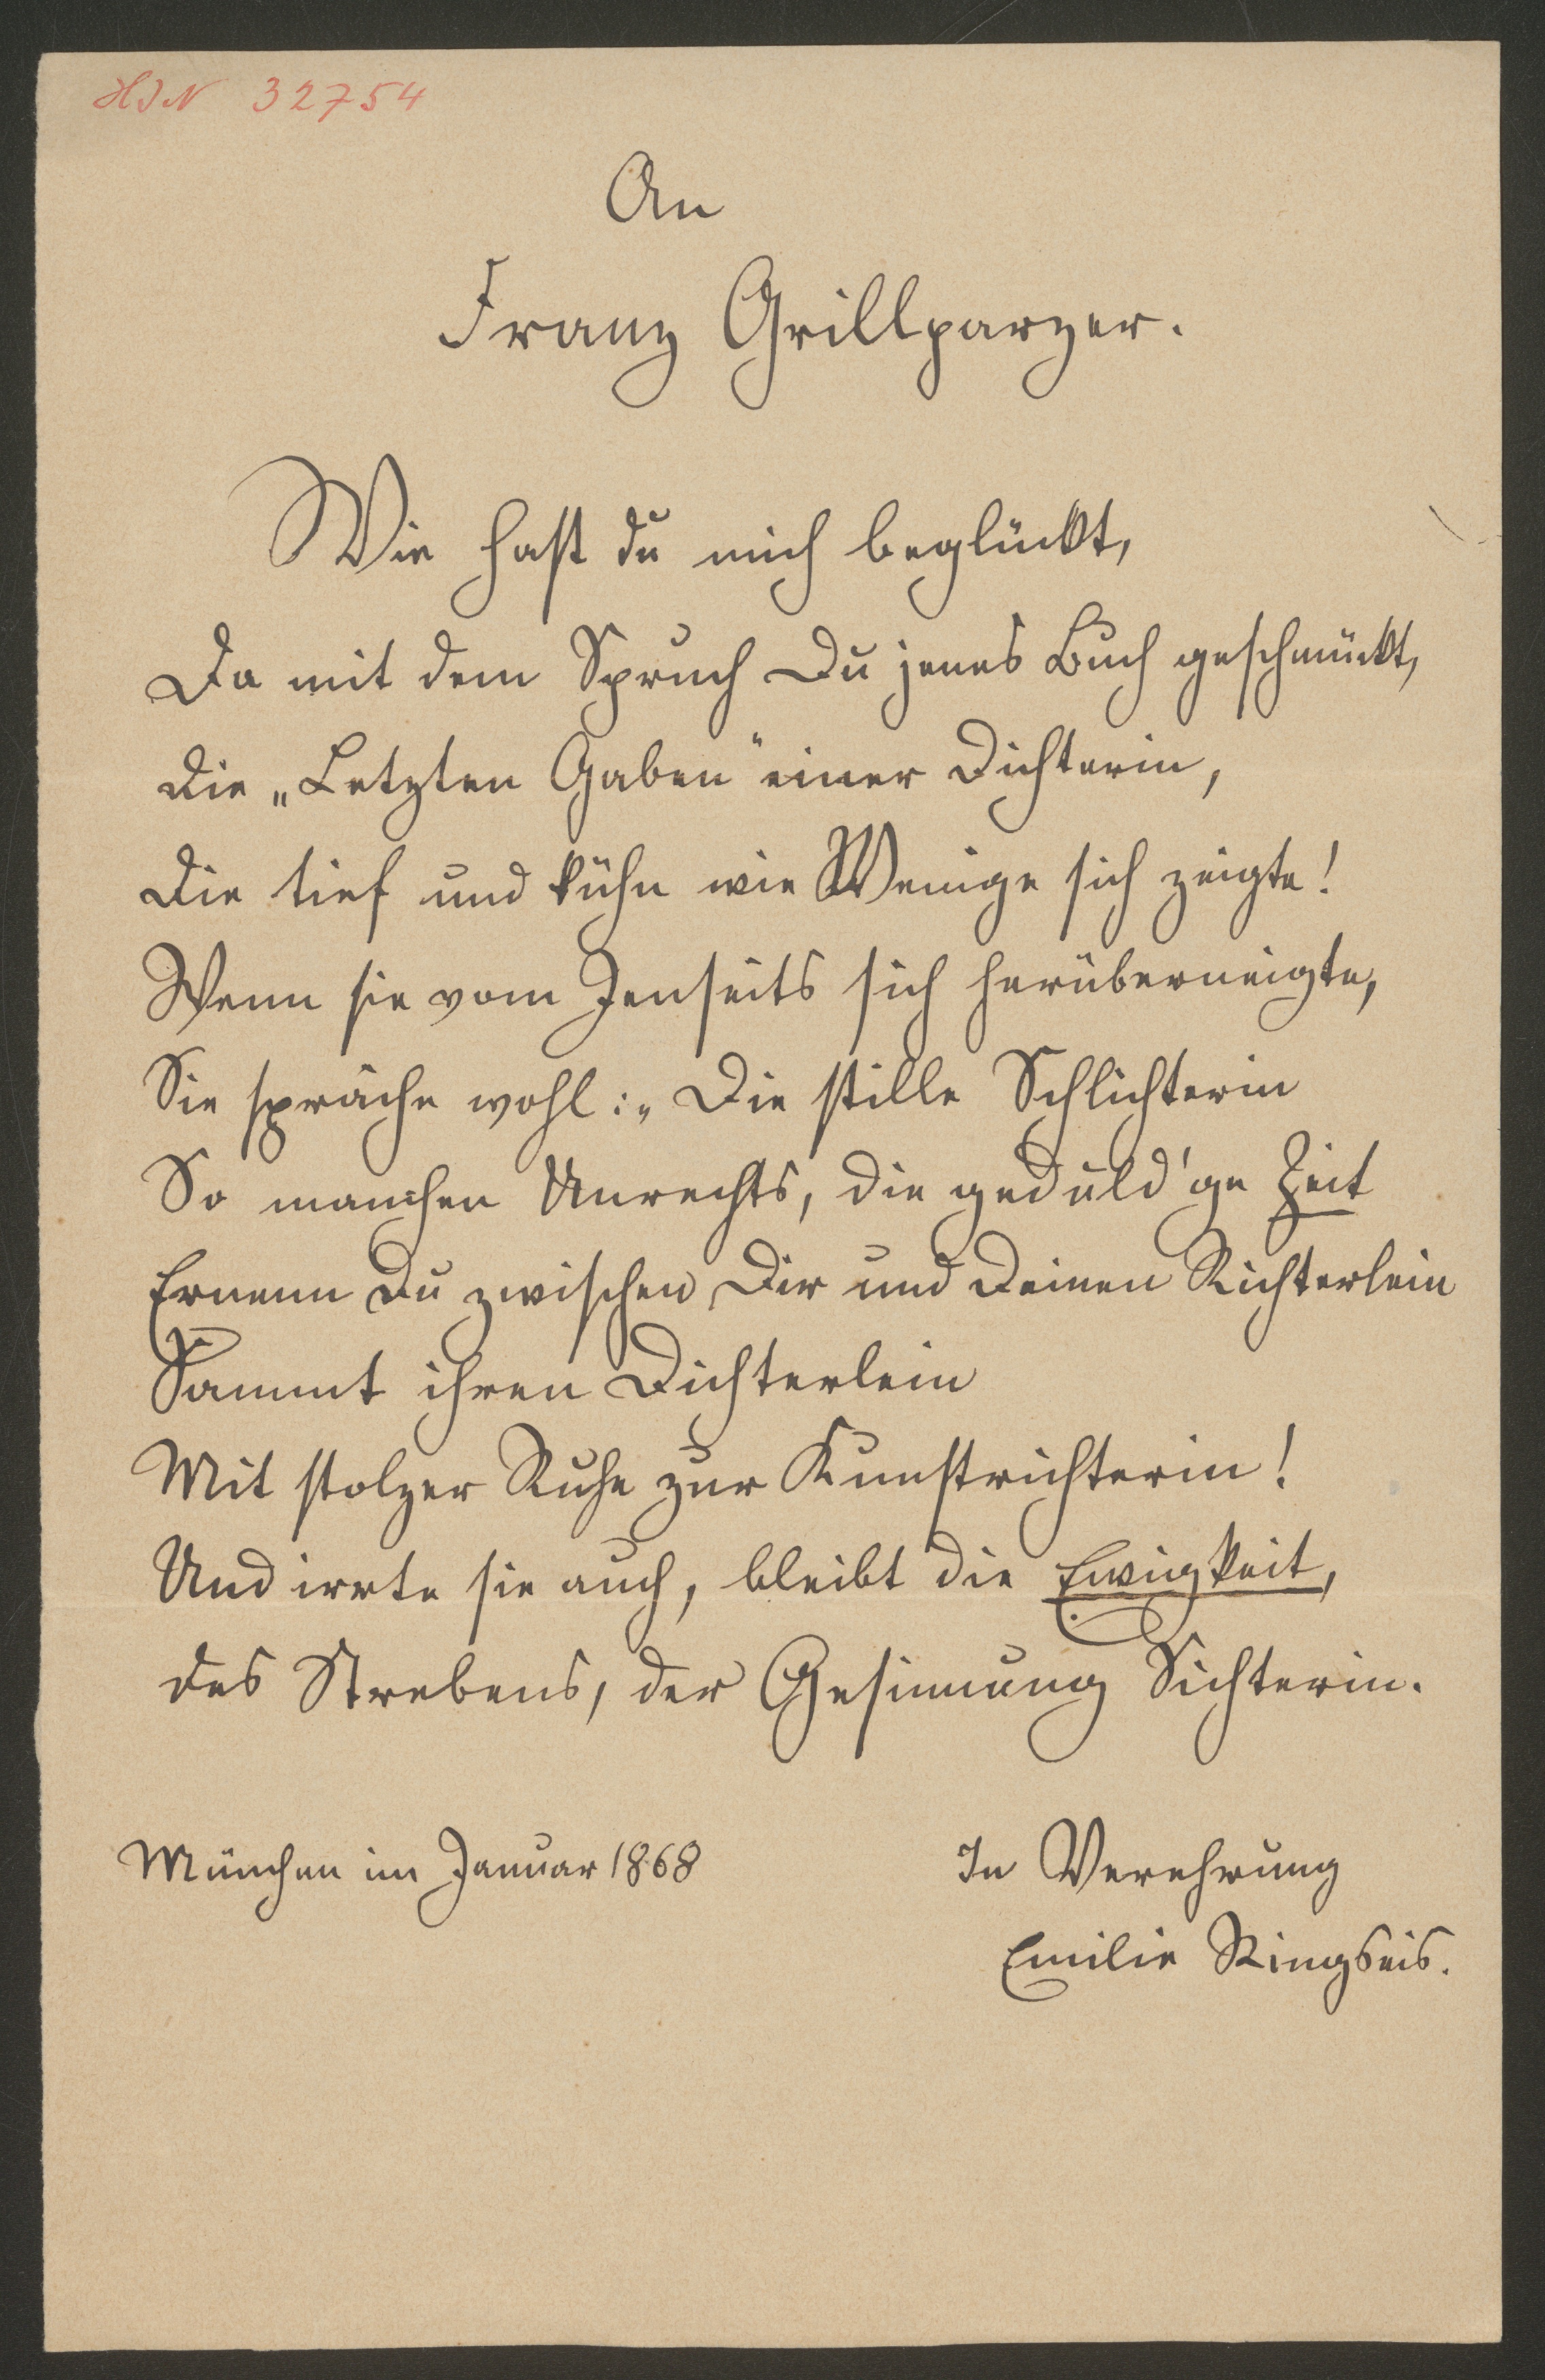 HJN 32754
An
Franz Grillparzer.
Wie hast du mich beglückt,
Da mit dem Spruch Du jenes Buch geschmückt,
Die „Letzten Gaben" einer Dichterin,
Die tief und kühn wie Wenige sich zeigte!
Wenn sie vom Jenseits sich herüberneigte,
Sie spräche wohl: „Die stille Schlichterin
So manchen Unrechts, die geduld'ge Zeit
Ernenn Du zwischen Dir und Deinen Richterlein
Sammt ihren Dichterlein
Mit stolzer Ruhe zur Kunstrichterin!
Und irrte sie auch, bleibt die Ewigkeit,
Des Strebens, der Gesinnung Sichterin.
München im Januar 1868
In Verehrung
Emilie Ringseis.